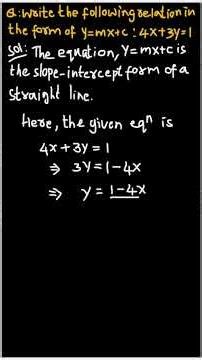 Q: Write the following relation in
the form of y=mx+c : 4x+3y=1
Sol: The equation, y=mx+c is
the slope-intercept form of a
straight line.
Here, the given eqⁿ is
4x+3y=1
⇒ 3y=1-4x
⇒ y = 1-4x